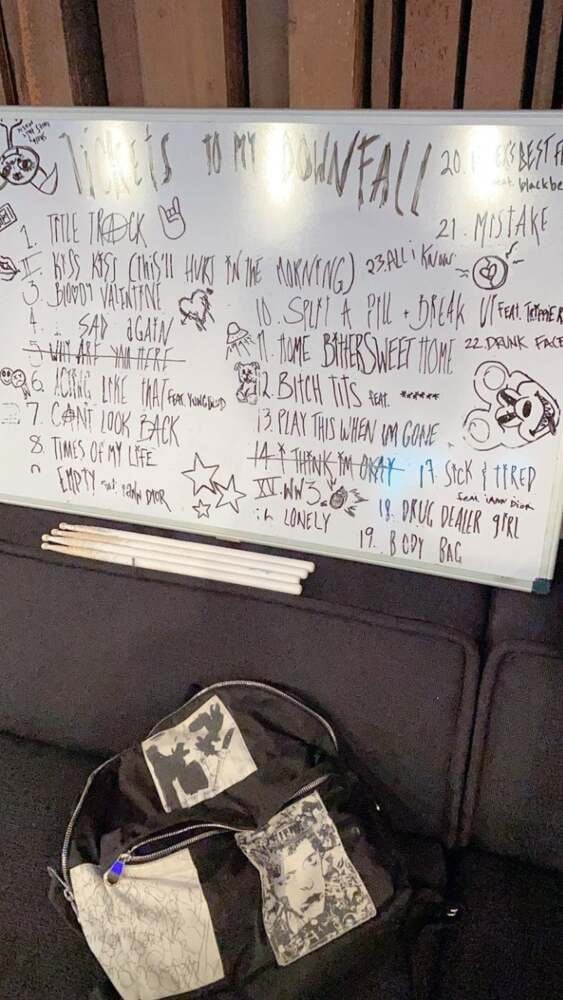 TICKETS TO MY DOWNFALL
1. TITLE TRACK
II. KISS KISS (THIS'LL HURT IN THE MORNING)
3. BLOODY VALENTINE
4. SAD AGAIN
5 WHY ARE YOU HERE
6. ACTING LIKE THAT FEAT. YUNGBLUD
7. CANT LOOK BACK
8. TIMES OF MY LIFE
EMPTY feat. iann Dior
10. SPLIT A PILL + BREAK UP FEAT. TRIPPIE R
11. HOME BITTERSWEET HOME
12. BITCH TITS FEAT. ******
13. PLAY THIS WHEN IM GONE
14. I THINK I'M OKAY
XV. WW3.
LONELY
17. SICK & TIRED
feat. iann Dior
18. DRUG DEALER GIRL
19. BODY BAG
20. BEST F
feat. blackbe
21. MISTAKE
22. DRUNK FACE
23. ALL I KNOW